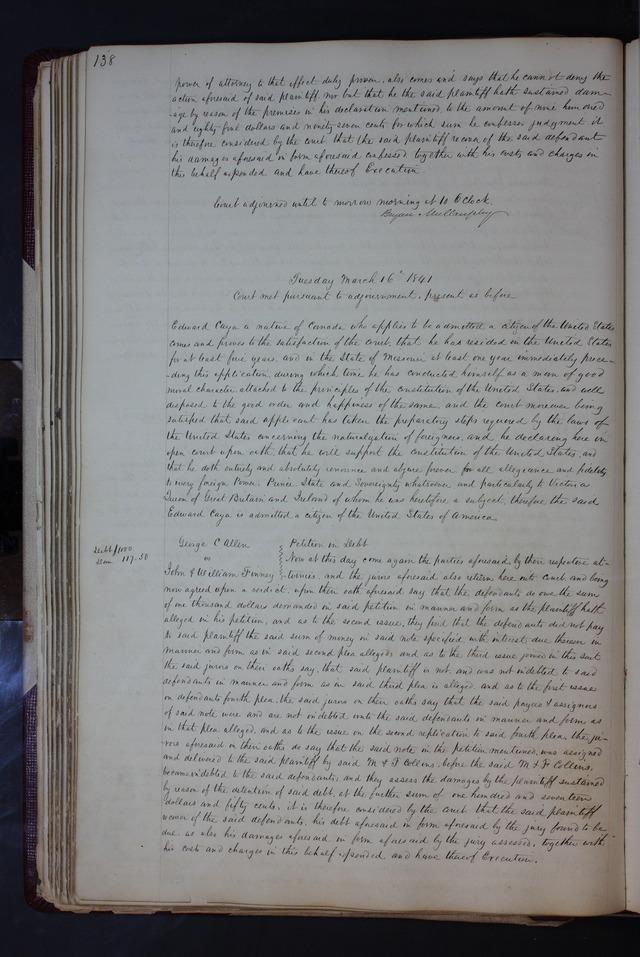 138
power of attorney to that effect duly proven, also comes and says that he cannot deny the
action aforesaid of said plaintiff nor but that he the said plaintiff hath sustained dam-
age by reason of the premises in his declaration mentioned, to the amount of nine hundred
and eighty four dollars and ninety seven cents for which sum he confesses judgment it
is therefore considered by the court that the said plaintiff recover of the said defendant
his damages aforesaid in form aforesaid confessed together with his costs and charges in
this behalf expended and have thereof Execution
Court adjourned until to morrow morning at 10 O'Clock.
Bryan Mullanphy
Tuesday March 16th 1841
Court met pursuant to adjournment, present as before
Edward Caya a native of Canada who applies to be admitted a citizen of the United States
comes and proves to the satisfaction of the court, that he has resided in the United States
for at least five years, and in the State of Missouri at least one year immediately prece-
-ding this application, during which time he has conducted himself as a man of good
moral character attached to the principles of the constitution of the United States, and well
disposed to the good order and happiness of the same, and the court moreover being
satisfied that said applicant has taken the preparatory steps required by the laws of
the United States concerning the naturalization of foreigners, and he declaring here in
open court upon oath, that he will support the constitution of the United States, and
that he doth entirely and absolutely renounce and abjure forever for all allegiance and fidelity
to every foreign Power, Prince State and Sovereignty whatsoever and particularly to Victoria
Queen of Great Britain and Ireland of whom he was heretofore a subject, therefore the said
Edward Caya is admitted a citizen of the United States of America
Debt $1000
Dam 117.50
George C Allen
vs
John & William Finney
Petition in Debt
Now at this day come again the parties aforesaid, by their respective at-
-tornies, and the jurors aforesaid also return here into Court and being
now agreed upon a verdict, upon their oath aforesaid say that the defendants do owe the sum
of one thousand dollars demanded in said petition in manner and form as the plaintiff hath
alleged in his petition, and as to the second issue, they find that the defendants did not pay
to said plaintiff the said sum of money in said note specified with interest due thereon in
manner and form as in said second plea alleged and as to the third issue joined in this suit
the said jurors on their oaths say, that said plaintiff is not, and was not indebted to said
defendants in manner and form as in said third plea is alleged and as to the first issue
on defendants fourth plea, the said jurors on their oaths say that the said payees & assignors
of said note were and are not indebted unto the said defendants in manner and form as
in that plea alleged, and as to the issue on the second replication to said fourth plea the ju-
rors aforesaid on their oaths do say that the said note in the petition mentioned, was assigned
and delivered to the said plaintiff by said M & F Collins, before the said M & F Collins,
became indebted to the said defendants, and they assess the damages by the plaintiff sustained
by reason of the detention of said debt, at the further sum of one hundred and seventeen
dollars and fifty cents, it is therefore considered by the court that the said plaintiff
recover of the said defendants, his debt aforesaid in form aforesaid by the jury found to be
due as also his damages aforesaid in form aforesaid by the jury assessed, together with
his costs and charges in this behalf expended and have thereof Execution.